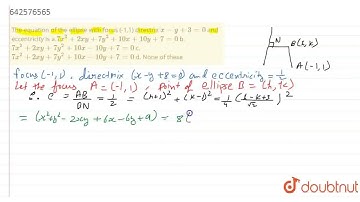 642576565
The equation of the ellipse with focus (-1,1) directrix x - y + 3 = 0 and
eccentricity is a. 7x² + 2xy + 7y² + 10x + 10y + 7 = 0 b.
7x² + 2xy + 7y² + 10x - 10y + 7 = 0 c.
7x² + 2xy + 7y² + 10x - 10y - 7 = 0 d. None of these
focus (-1,1), directrix (x-y+8=0) and eccentricity = 1/2
Let the focus A = (-1,1), point of ellipse B = (h,k)
e = AB/BN = 1/2 = (h+1)² + (k-1)² = 1/4 (h-k+3/√2)²
= (x²+y² - 2xy + 6x - 6y + 9) = 8(
N
B(h,k)
A(-1,1)
doubtnut